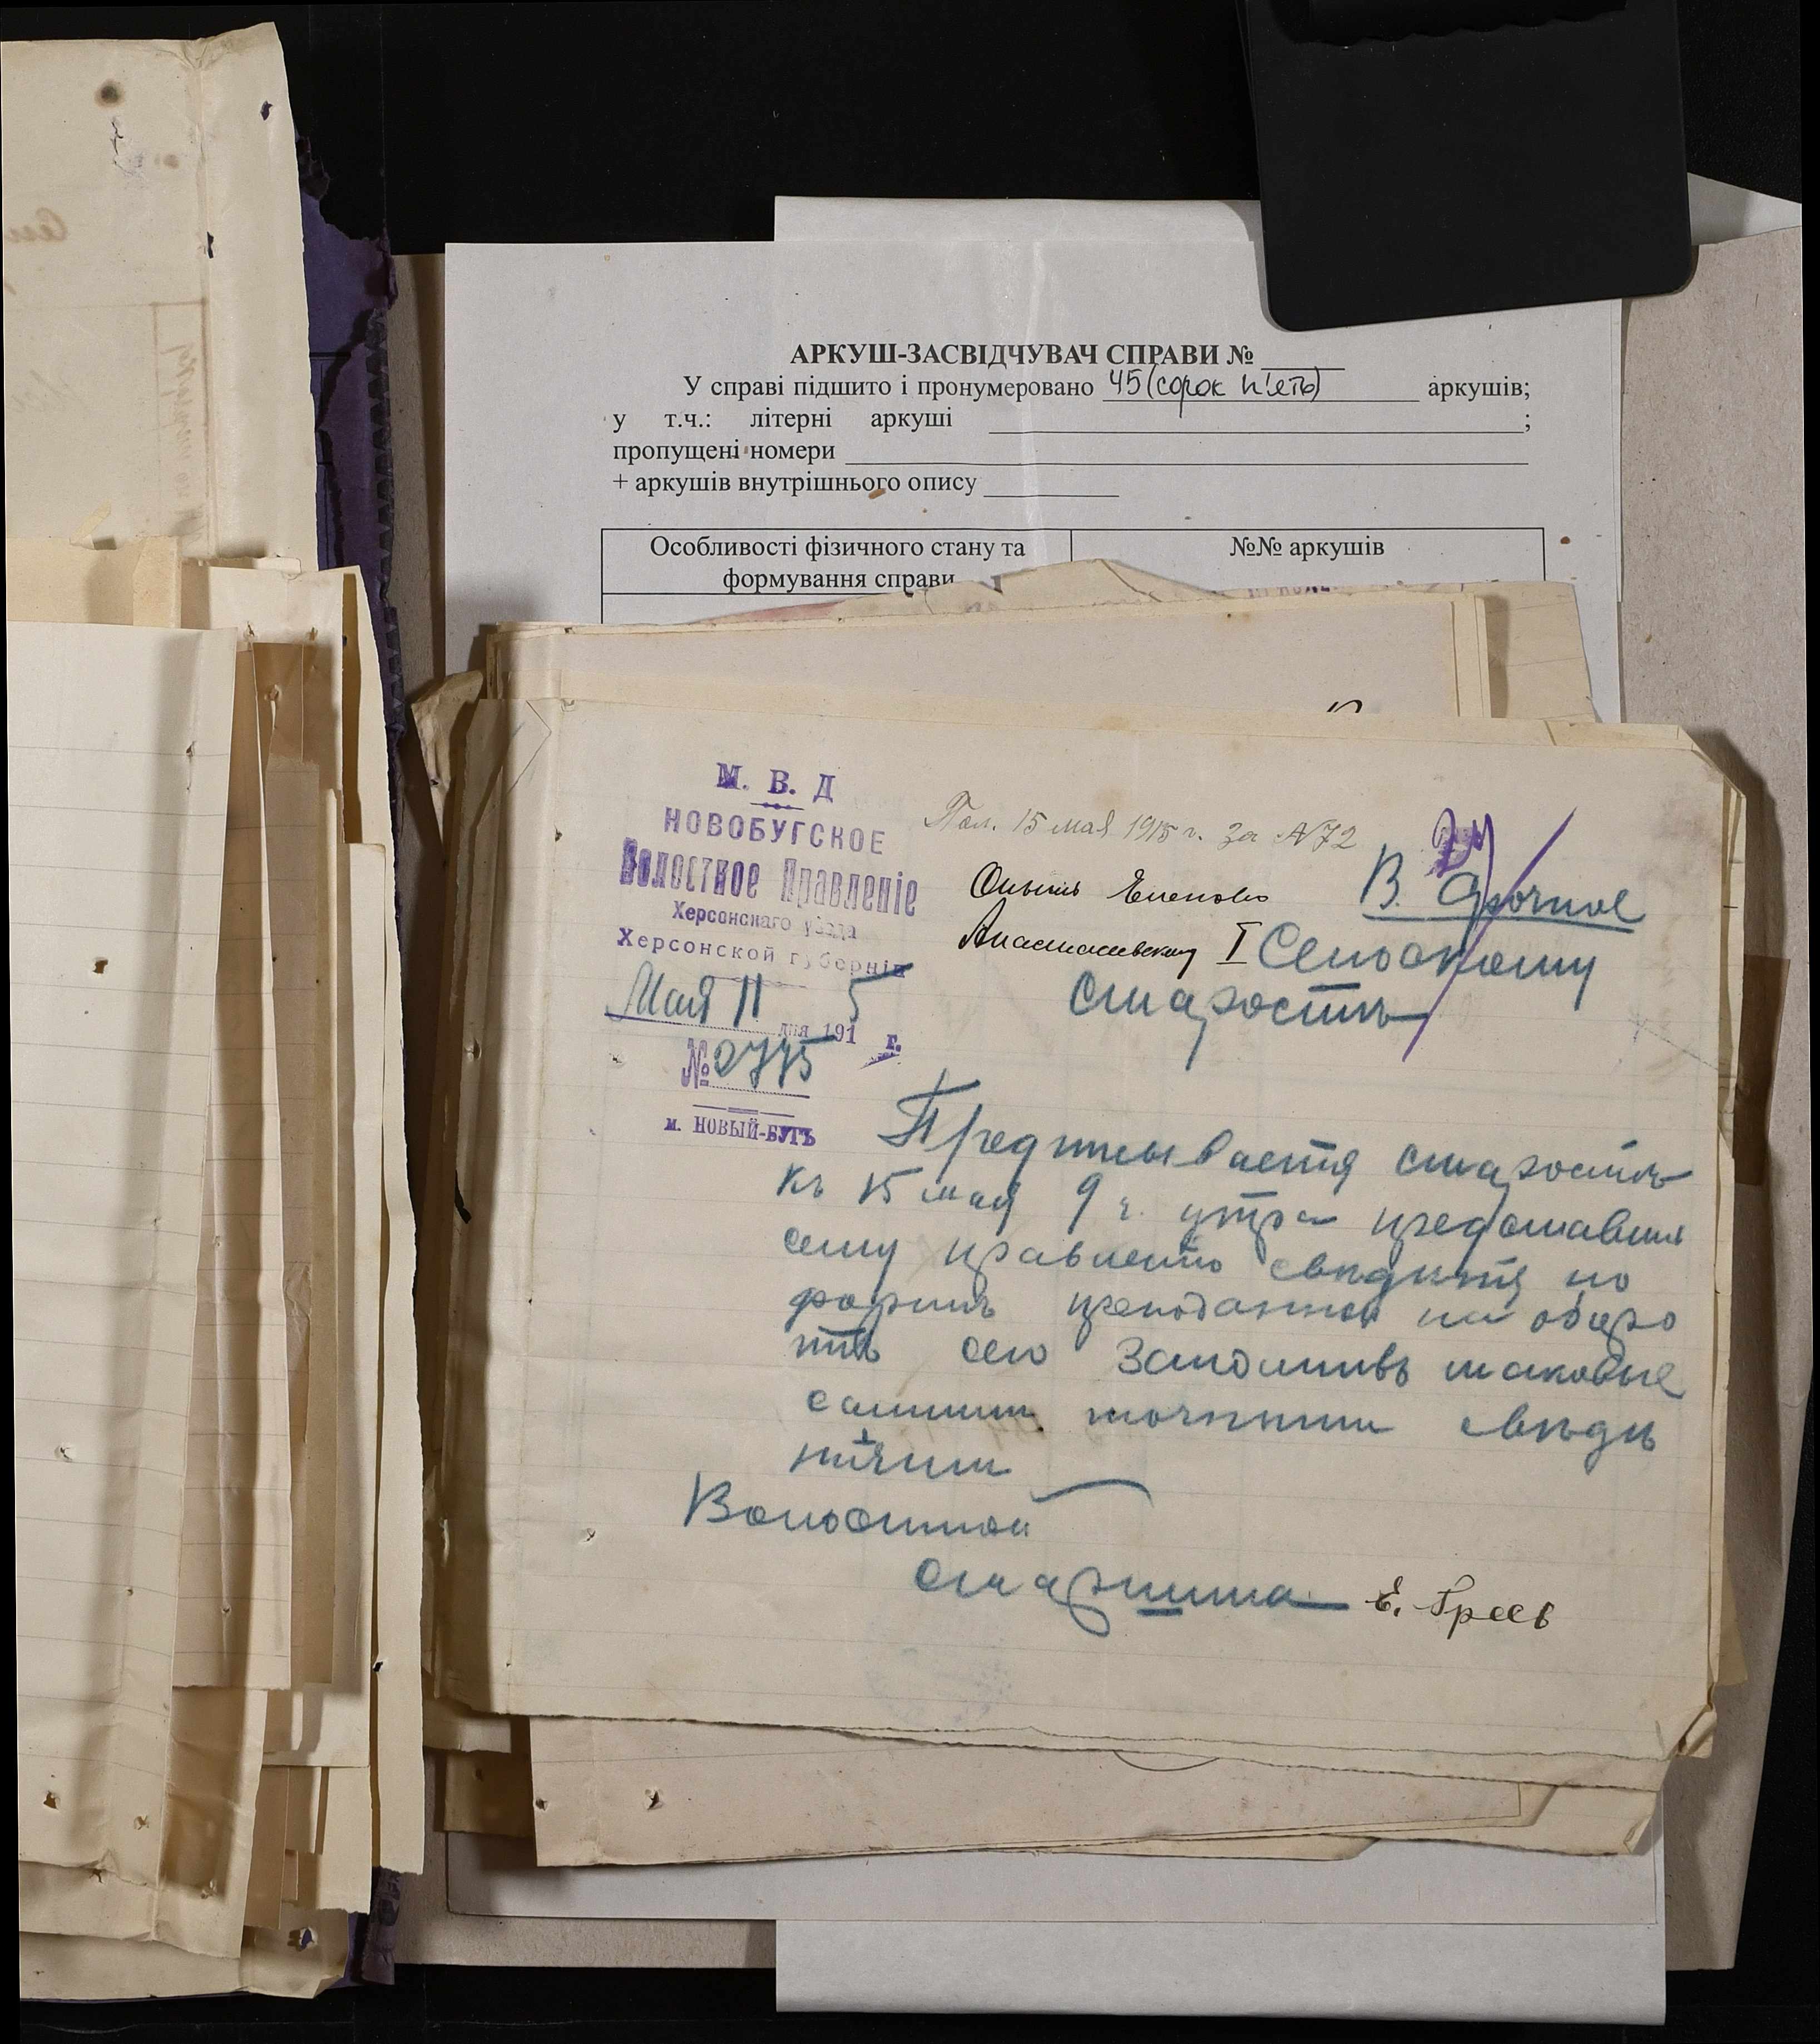 АРКУШ-ЗАСВІДЧУВАЧ СПРАВИ № ______
У справі підшито і пронумеровано 45 (сорок п'ять) аркушів;
у т.ч.: літерні аркуші ______;
пропущені номери ______
+ аркушів внутрішнього опису ______
Особливості фізичного стану та формування справи
№№ аркушів
М. В. Д
НОВОБУГСКОЕ
Волостное Правленіе
Херсонскаго уѣзда
Херсонской губерніи
Мая 11 дня 1915 г.
№ 2775
м. НОВЫЙ-БУГЪ
Пол. 15 мая 1915 г. за №72
В. Срочное
Еленово
Анастасьевскому I Сельскому
Старостѣ
Предписывается старостѣ
къ 15 мая 9 ч. утра представить
сему правленію свѣдѣнія по
формѣ преподанной на оборо
тѣ сего заполнивъ таковые
самыми точными свѣдѣ
ніями
Волостной
старшина Е.